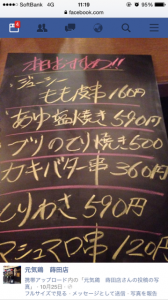 SoftBank 4G 11:19 95%
facebook.com
ジューシー
もも皮串 160円
あゆ塩焼き 590円
ブリのてり焼き 500
カキバター串 360円
とりわさ 590円
マシュマロ串 120円
元気鶏 蒔田店
携帯アップロード内の「元気鶏 蒔田店さんの投稿の写
真」・10月25日・
フルサイズで見る・メッセージとして送信・写真を報告